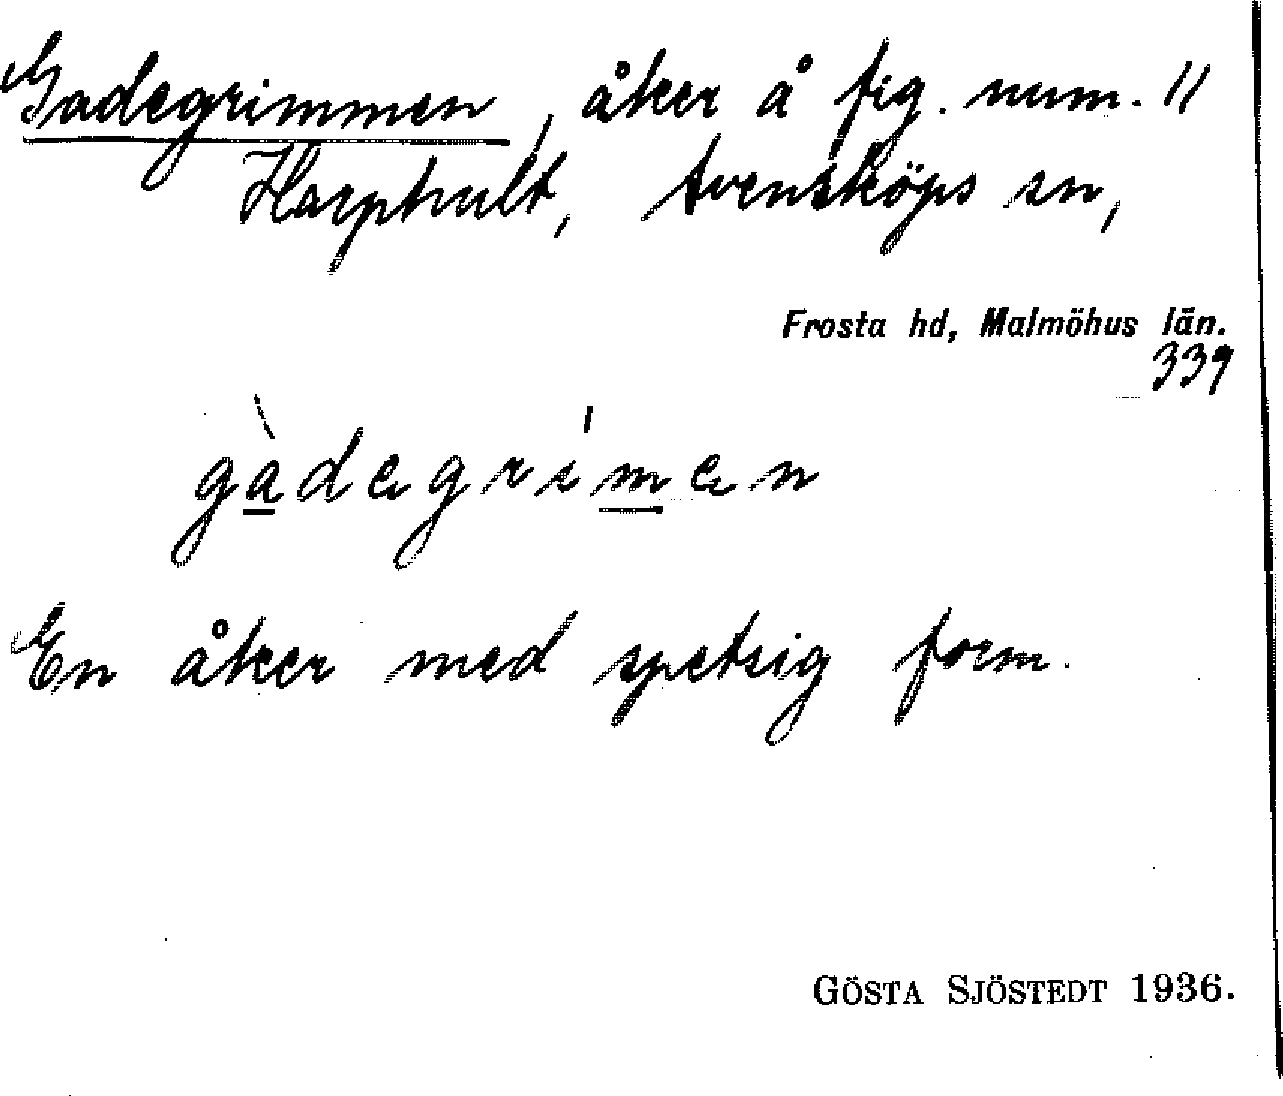 Gadegrimmen, åker å fig. num. 11
Harphult, Svensköps sn,
Frosta hd, Malmöhus län.
339
gàdegrímen
En åker med spetsig form.
GÖSTA SJÖSTEDT 1936.